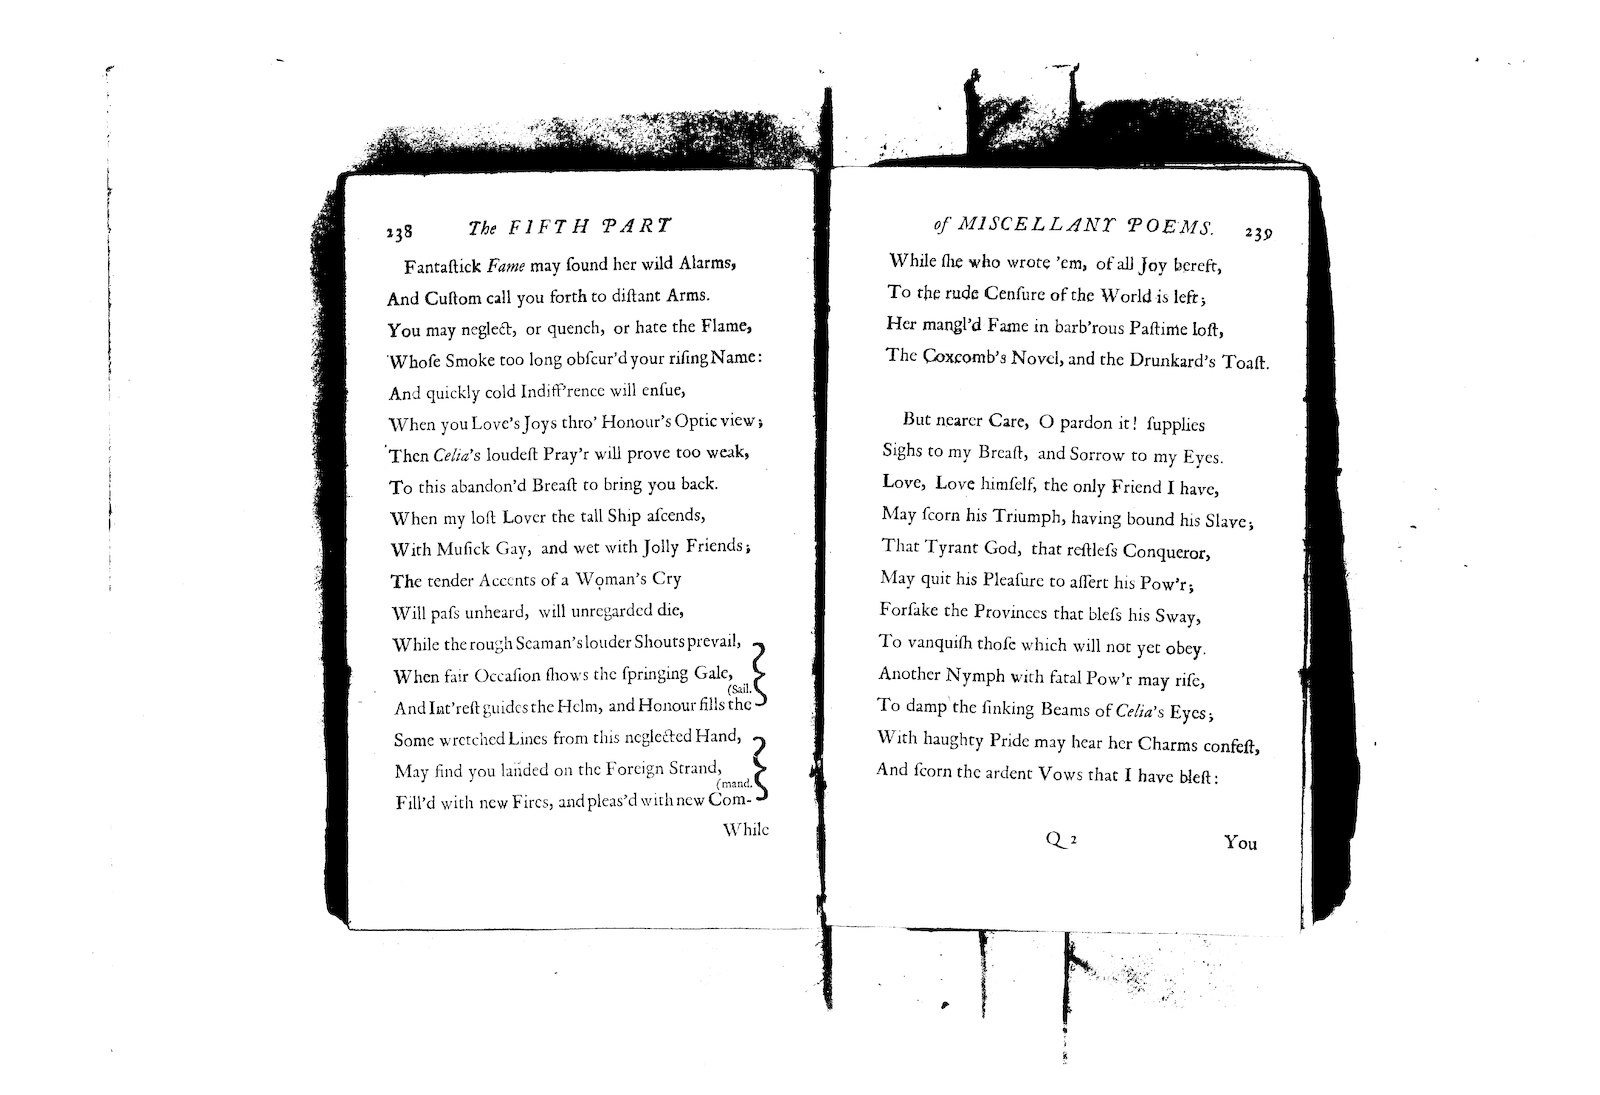 238 The FIFTH PART
Fantaſtick Fame may ſound her wild Alarms,
And Cuſtom call you forth to diſtant Arms.
You may neglect, or quench, or hate the Flame,
Whoſe Smoke too long obſcur'd your riſing Name:
And quickly cold Indiff'rence will enſue,
When you Love's Joys thro' Honour's Optic view;
Then Celia's loudeſt Pray'r will prove too weak,
To this abandon'd Breaſt to bring you back.
When my loſt Lover the tall Ship aſcends,
With Muſick Gay, and wet with Jolly Friends;
The tender Accents of a Woman's Cry
Will paſs unheard, will unregarded die,
While the rough Seaman's louder Shouts prevail,
When fair Occaſion ſhows the ſpringing Gale,
(Sail.
And Int'reſt guides the Helm, and Honour fills the
Some wretched Lines from this neglected Hand,
May find you landed on the Foreign Strand,
(mand.
Fill'd with new Fires, and pleas'd with new Com-
While
of MISCELLANY POEMS. 239
While ſhe who wrote 'em, of all Joy bereft,
To the rude Cenſure of the World is left;
Her mangl'd Fame in barb'rous Paſtime loſt,
The Coxcomb's Novel, and the Drunkard's Toaſt.
But nearer Care, O pardon it! ſupplies
Sighs to my Breaſt, and Sorrow to my Eyes.
Love, Love himſelf, the only Friend I have,
May ſcorn his Triumph, having bound his Slave;
That Tyrant God, that reſtleſs Conqueror,
May quit his Pleaſure to aſſert his Pow'r;
Forſake the Provinces that bleſs his Sway,
To vanquiſh thoſe which will not yet obey.
Another Nymph with fatal Pow'r may riſe,
To damp the ſinking Beams of Celia's Eyes;
With haughty Pride may hear her Charms confeſt,
And ſcorn the ardent Vows that I have bleſt:
Q 2 You